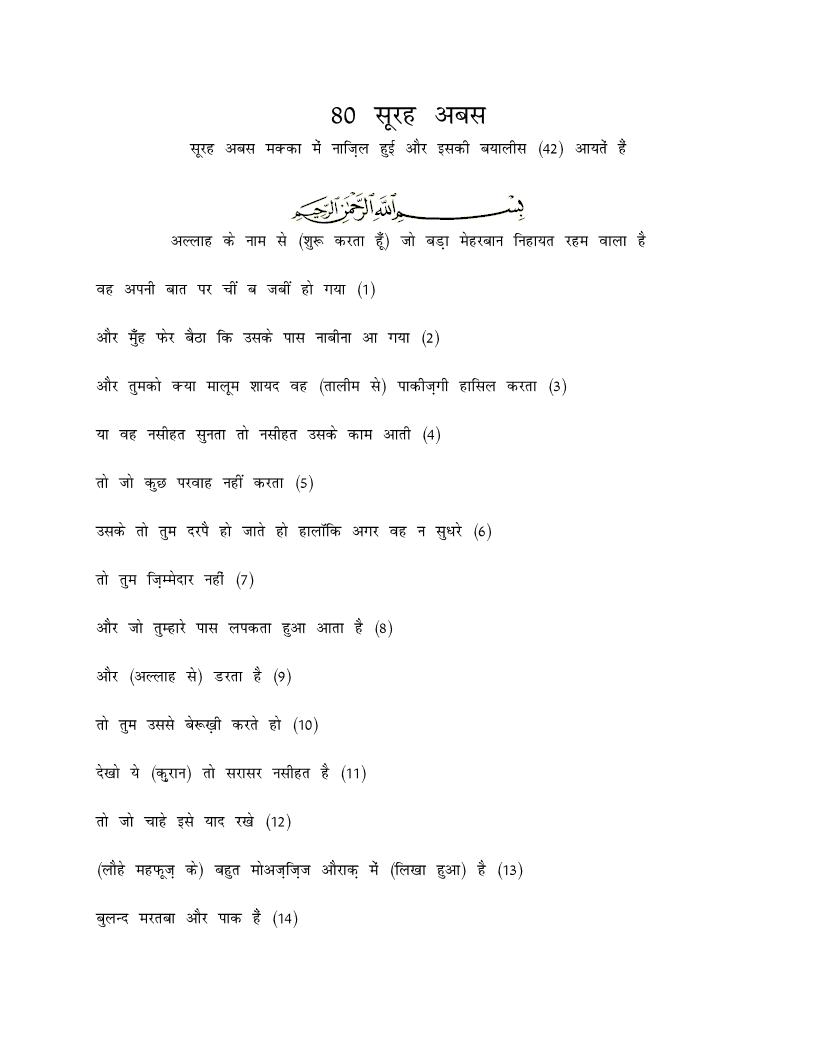 80 सूरह अबस
सूरह अबस मक्का में नाज़िल हुई और इसकी बयालीस (42) आयतें हैं
بِسْمِ اللَّهِ الرَّحْمَٰنِ الرَّحِيمِ
अल्लाह के नाम से (शुरू करता हूँ) जो बड़ा मेहरबान निहायत रहम वाला है
वह अपनी बात पर चीं ब जबीं हो गया (1)
और मुँह फेर बैठा कि उसके पास नाबीना आ गया (2)
और तुमको क्या मालूम शायद वह (तालीम से) पाकीज़गी हासिल करता (3)
या वह नसीहत सुनता तो नसीहत उसके काम आती (4)
तो जो कुछ परवाह नहीं करता (5)
उसके तो तुम दरपै हो जाते हो हालॉकि अगर वह न सुधरे (6)
तो तुम ज़िम्मेदार नहीं (7)
और जो तुम्हारे पास लपकता हुआ आता है (8)
और (अल्लाह से) डरता है (9)
तो तुम उससे बेरूख़ी करते हो (10)
देखो ये (क़ुरान) तो सरासर नसीहत है (11)
तो जो चाहे इसे याद रखे (12)
(लौहे महफूज़ के) बहुत मोअज़ज़िज औराक़ में (लिखा हुआ) है (13)
बुलन्द मरतबा और पाक हैं (14)